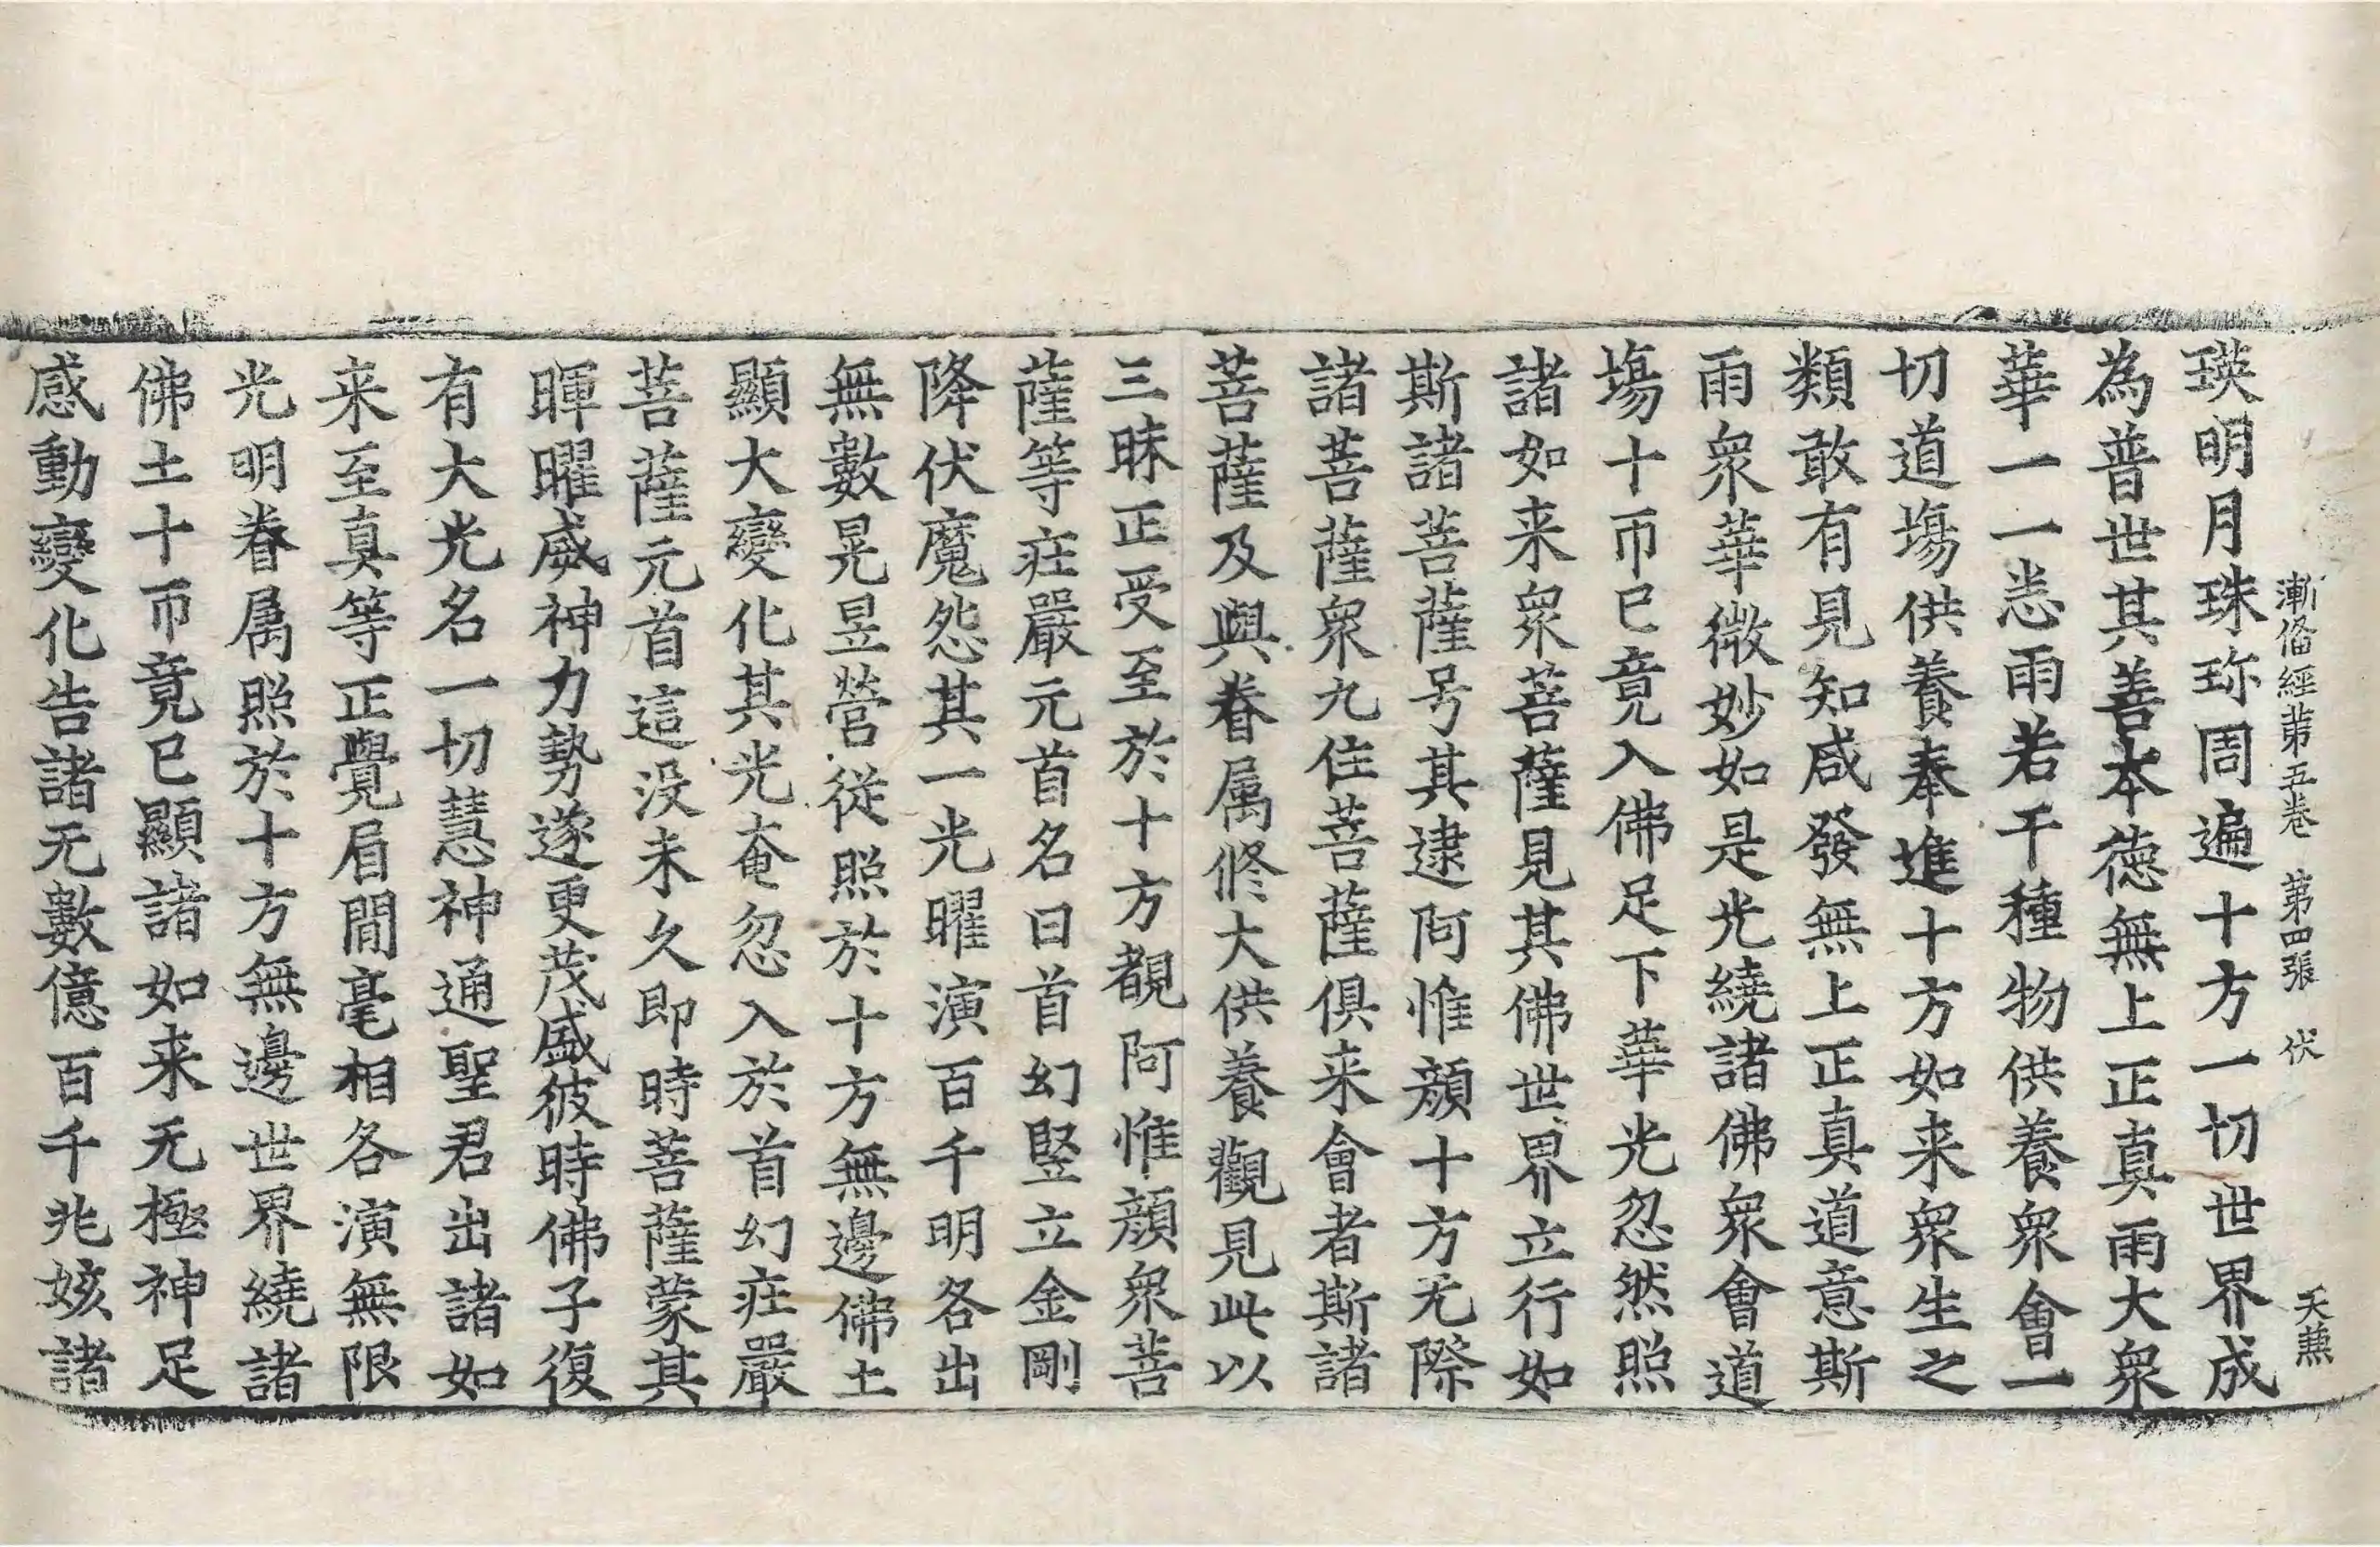 漸俻經苐五卷　第四張　伏　天䕶
瑛明月珠珎周遍十方一切世界成
為普世其善本徳無上正真雨大衆
華一一悉雨若干種物供養衆會一
切道塲供養奉進十方如来衆生之
類敢有見知咸發無上正真道意斯
雨衆華微妙如是光繞諸佛衆會道
塲十帀已竟入佛足下華光忽然照
諸如来衆菩薩見其佛世界立行如
斯諸菩薩号其逮阿惟顔十方无際
諸菩薩衆九住菩薩俱来會者斯諸
菩薩及與眷属修大供養觀見此以
三昧正受至於十方覩阿惟顔衆菩
薩等荘嚴元首名曰首幻竪立金剛
降伏魔怨其一光曜演百千明各出
無數晃昱營從照於十方無邊佛土
顯大變化其光奄忽入於首幻荘嚴
菩薩元首這没未久即時菩薩蒙其
暉曜威神力勢遂更茂盛彼時佛子復
有大光名一切慧神通聖君出諸如
来至真等正覺眉間毫相各演無限
光明眷属照於十方無邊世界繞諸
佛土十帀竟已顯諸如来无極神足
感動變化告諸无數億百千兆姟諸